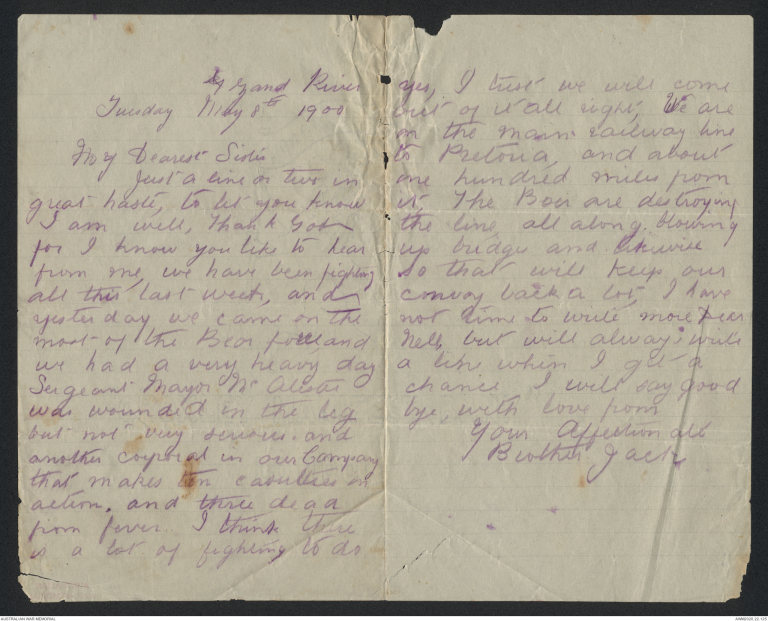 Zand River
Tuesday May 8th 1900
My Dearest Sister
Just a line or two in
great haste, to let you know
I am well, Thank God
for I know you like to hear
from me, we have been fighting
all this last week, and
yesterday we came on the
most of the Boer force and
we had a very heavy day
Sergeant Mayor Mc Alister
was wounded in the leg
but not very serious. and
another corporal in our Company
that makes ten caulties in
action. and three dead
from fever. I think there
is a lot of fighting to do
yes, I trust we will come
out of it all right, We are
on the main railway line
to Pretoria, and about
one hundred miles from
it. The Boer are destroying
the line all along, blowing
up bridges and likewise
so that will keep our
convoy back a lot, I have
not time to write more Dear
Nell, but will always write
a line when I get a
chance I will say good
bye, with love from
Your Affectionate
Brother Jack
AUSTRALIAN WAR MEMORIAL
AWM2020.22.125